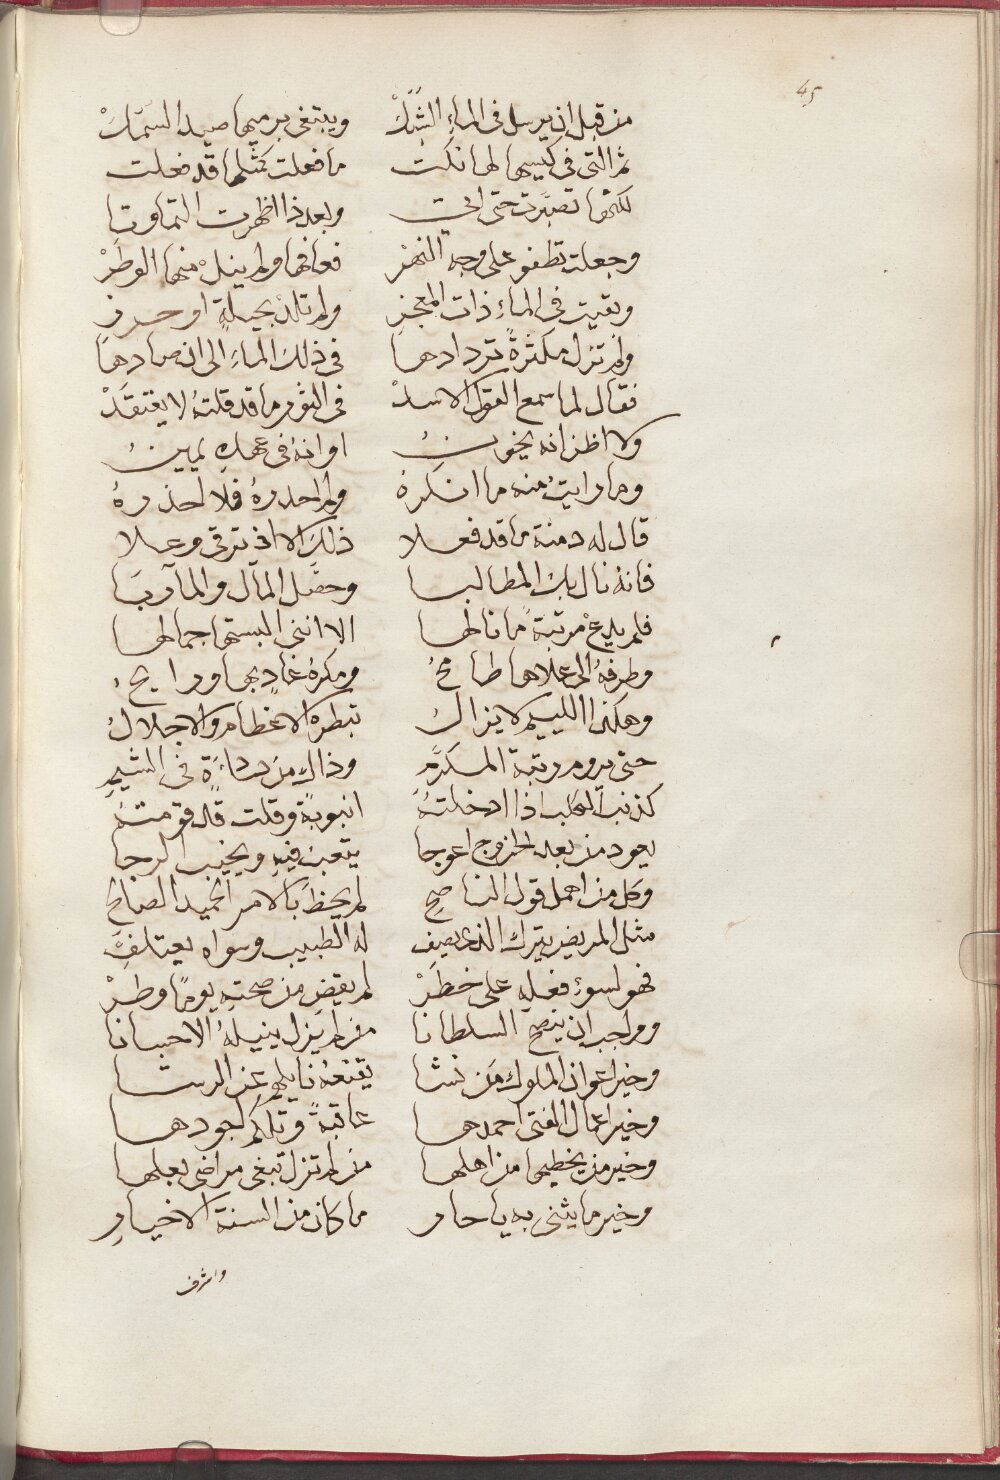 45
من قبل ان يرسل فى الماءِ الشَّبَكْ ويبتغى برميها صيد السَمَّكْ
ثم التى فى كيسها لها نكت ما فعلت كمثلما قد فعلت
لكنها تصبَّرت حتى اتى وبعد ذا اظهرت التماوتا
وجعلت تطفو على وجه النهْر فعافها ولم ينلْ منها الوطَرْ
وبقيت فى الماءِ ذات المعجز ولم تلذ بحيلةٍ او حرز
ولم تزل مكثرةً تردادها فى ذلك الماءِ الى ان صادها
فقال لما سمع القول الاسدْ فى الثور ما قد قلتهُ لا يعتقدْ
ولا اظن انه يخونُ او انهُ فى عهدهِ يمينُ
وما رايتُ منه ما انكرهْ ولم احذرهُ فلا احذرهُ
قال له دمنة ما قد فعلا ذلك الا اذ ترقى وعلا
فانهُ نال بك المطالبا وحصَّل المآل والمآربَا
فلم يدعْ مرتبةً ما نالها الا اننى البستها جمالها
وطرفهُ الى علاها طامحُ ومكرهُ غادٍ بها ورايحُ
وهكذا اللييم لا يزالُ تبطره الاعظام والاجلالُ
حتى يروم رتبة المكرَّم وذاك من دناءَةٍ فى الشيمِ
كذنب الكلب اذا ادخلتهُ انبوبةً وقلت قد قومتهُ
يعود من بعد الخروج اعوجا يتعب فيهِ ويخيب الرجا
وكل من اهمل قول الناصحِ لم يحظَ بالامر الحميد الصالح
مثل المريض يترك الذى يصف له الطبيب وسواه يعتلفَ
فهو لسوءِ فعلهِ على خطَرْ لم يقضِ من صحتهِ يومًا وطرْ
وواجب ان ينصح السلطانا من لم يزل ينيلهُ الاحسانا
وخير اعوان الملوك من نشا يقنعهُ نايلهم عن الرشا
وخير اعمال الفتى احمدها عاقبةً وتلكم اجودها
وخير من يخطيها من اهلها من لم تزل تبغى مراضى بعلها
وخير ما يثنى به يا حار ما كان من السنة الاخيارِ
واشرف